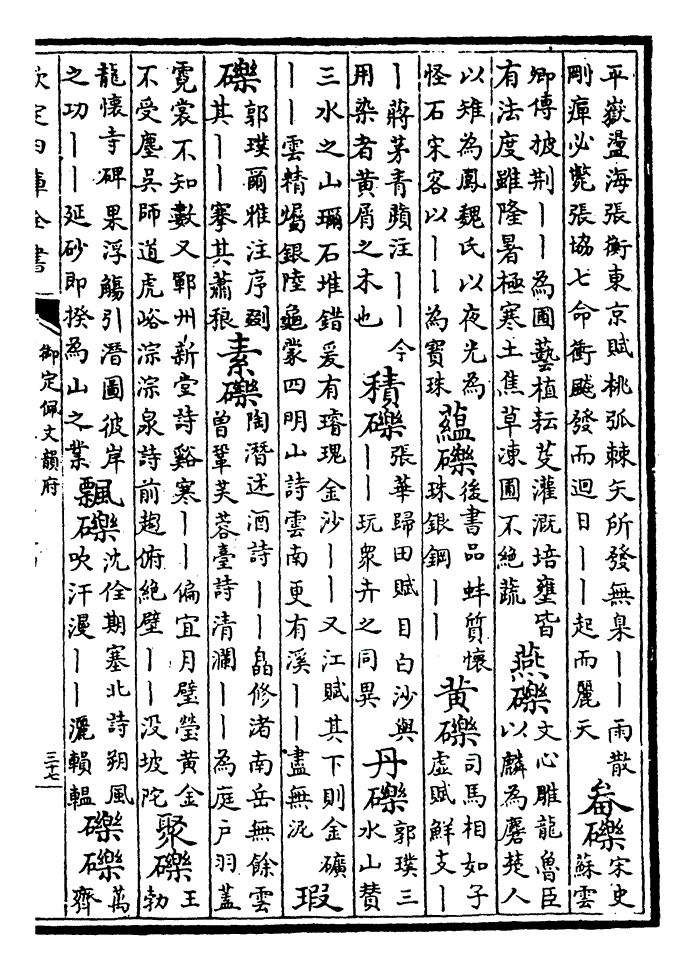 平嶽盪海張衡東京賦桃弧棘矢所發無臬丨丨雨散
剛癉必斃張協七命衝飈發而迴日丨丨起而麗天
畚礫
宋史
蘇雲
卿傳披荆丨丨為圃藝植耘芟灌溉培壅皆
有法度雖隆暑極寒土焦草凍圃不絶蔬
燕礫
文心雕龍魯臣
以麟為麏楚人
以雉為鳳魏氏以夜光為
怪石宋客以丨丨為寳珠
蘊礫
後書品蚌質懷
珠銀鋼丨丨
黄礫
司馬相如子
虚賦鮮支丨
丨蔣茅青薠注丨丨今
用染者黄屑之木也
積礫
張華歸田賦目白沙與
丨丨玩衆卉之同異
丹礫
郭璞三
水山贊
三水之山瑂石堆錯爰有璿瑰金沙丨丨又江賦其下則金礦
丨丨雲精爥銀陸龜蒙四明山詩雲南更有溪丨丨盡無泥
瑕
礫
郭璞爾雅注序剟
其丨丨搴其蕭稂
素礫
陶潛述酒詩丨丨皛修渚南岳無餘雲
曾鞏芙蓉臺詩清瀾丨丨為庭户羽蓋
霓裳不知數又鄆州新堂詩谿寒丨丨偏宜月壁瑩黄金
不受塵吳師道虎峪淙淙泉詩前趨俯絶壁丨丨没坡陀
聚礫
王
勃
龍懷寺碑果浮觴引潛圖彼岸
之功丨丨延砂即揆為山之業
飄礫
沈佺期塞北詩朔風
吹汗漫丨丨灑轒轀
礫礫
萬
齊
欽定四庫全書
御定佩文韻府
三十七